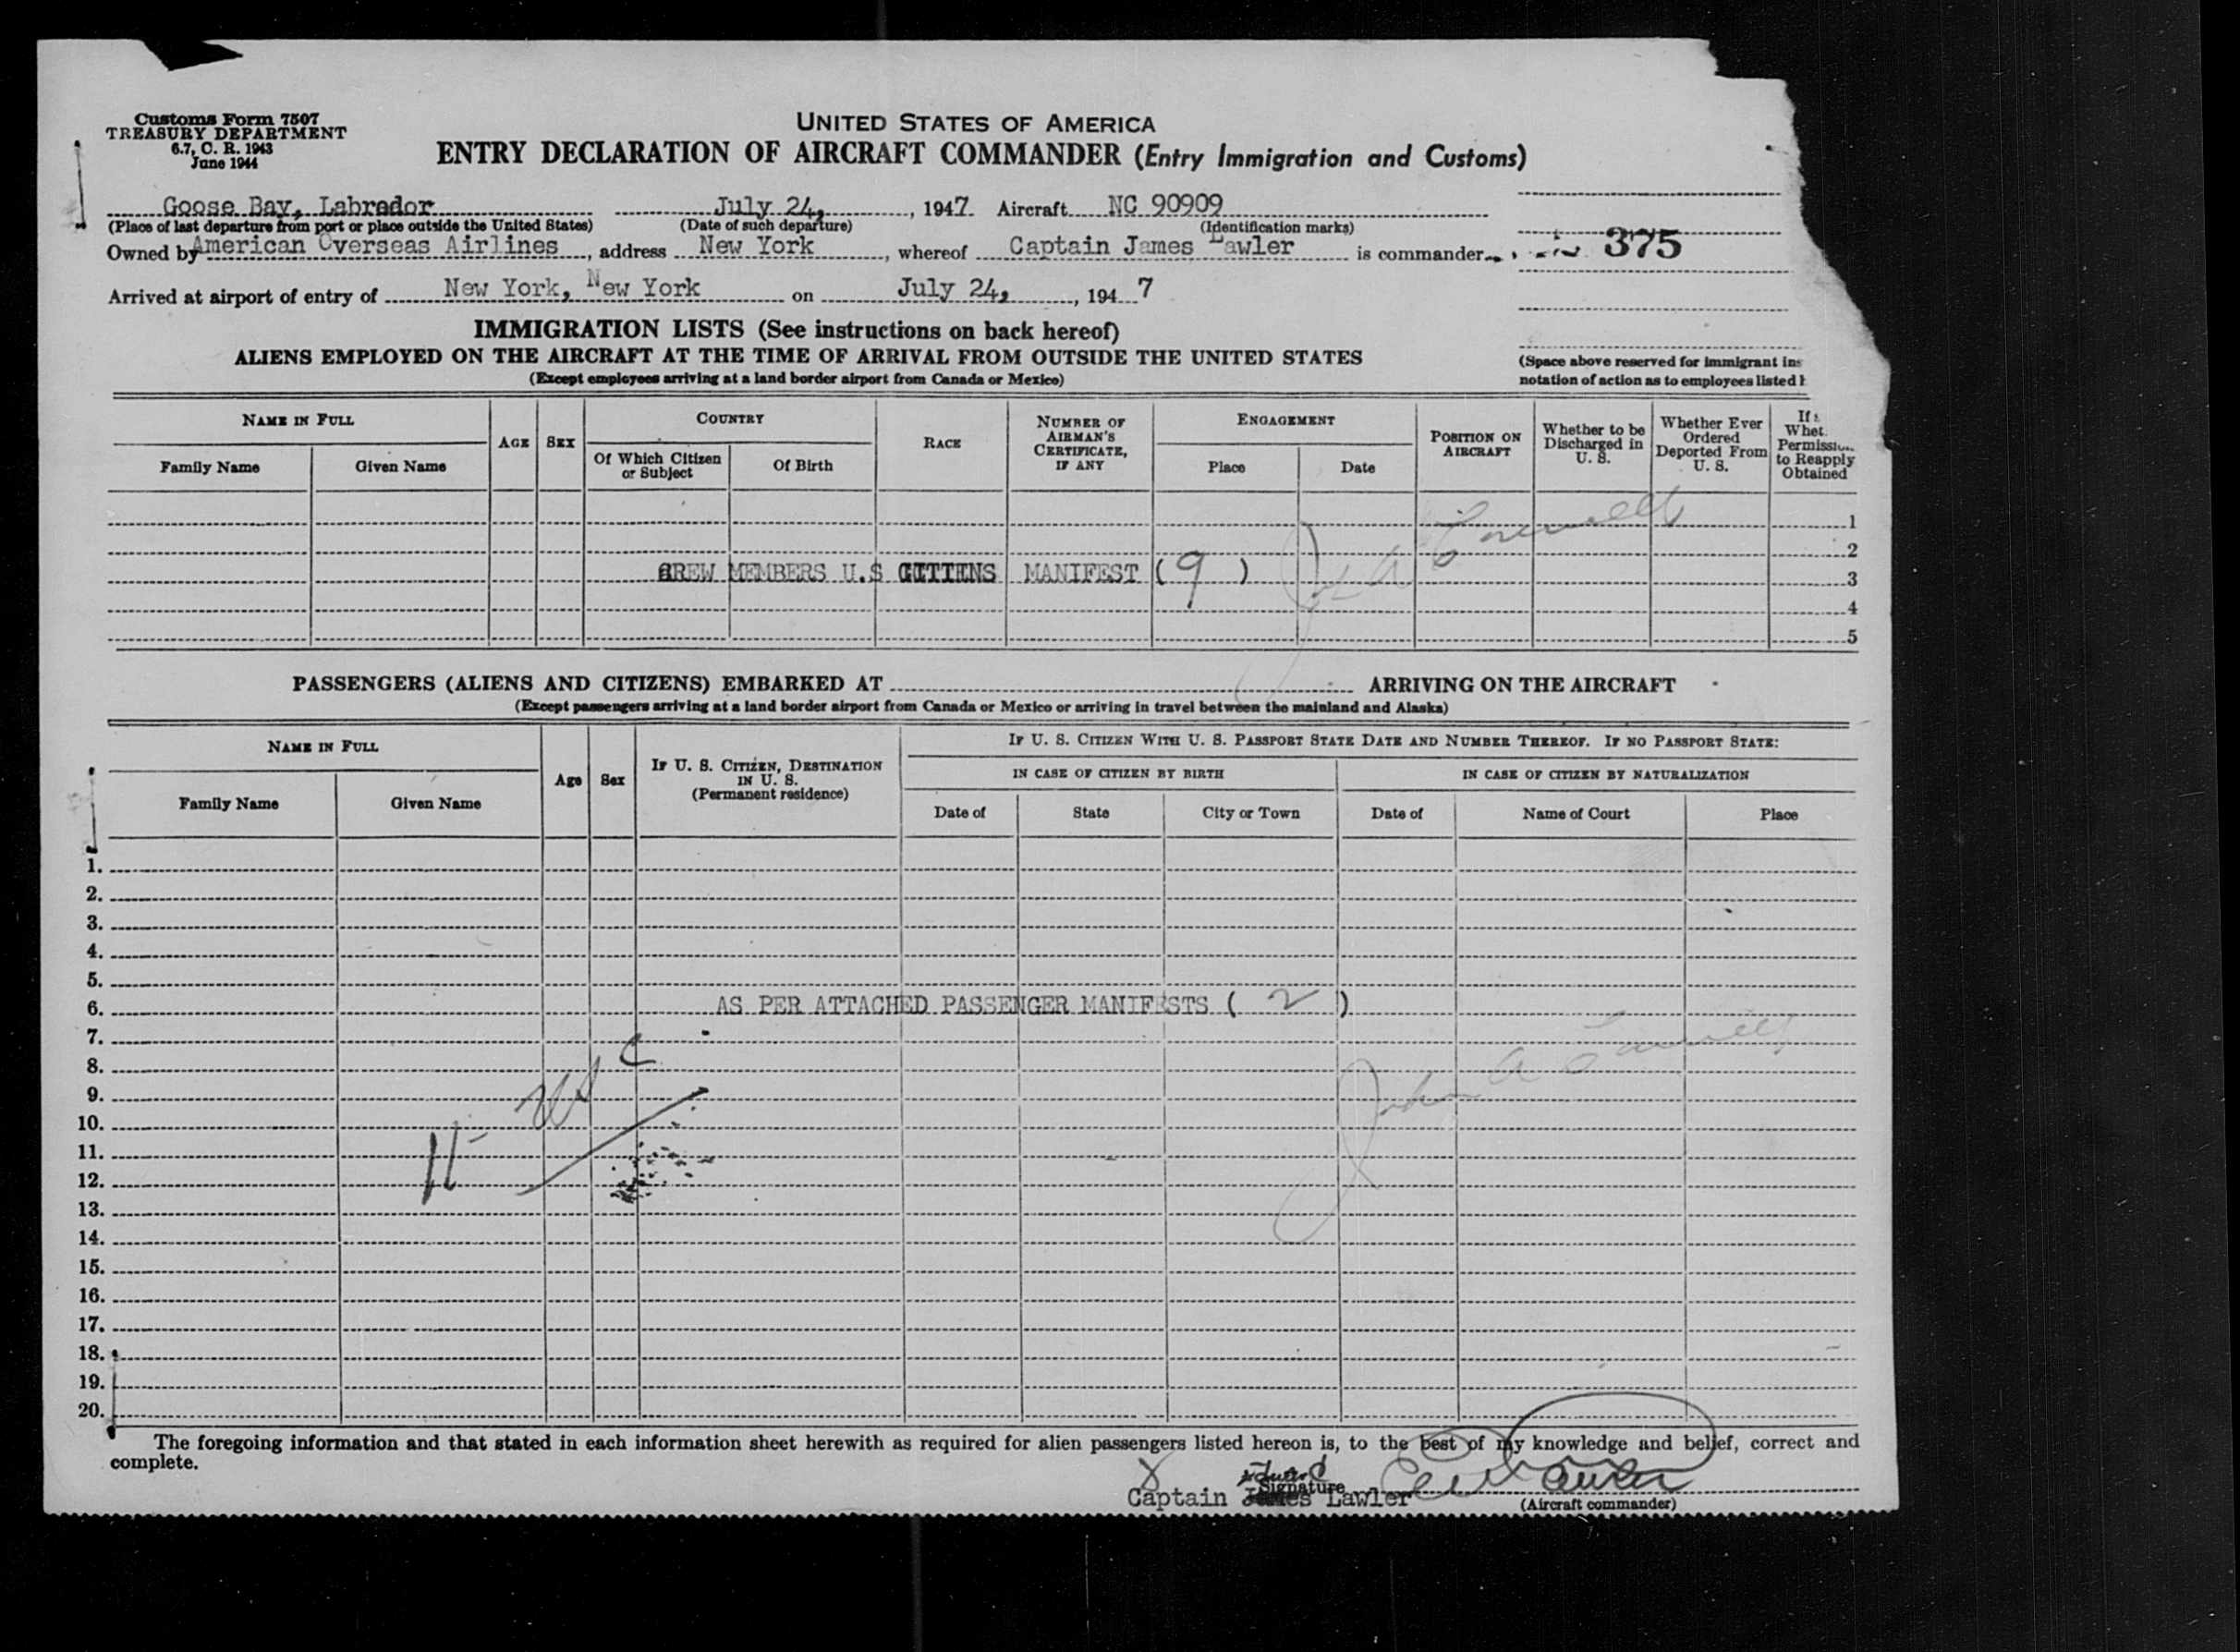 Customs Form 7507
TREASURY DEPARTMENT
6.7, C. R. 1943
June 1944
UNITED STATES OF AMERICA
ENTRY DECLARATION OF AIRCRAFT COMMANDER (Entry Immigration and Customs)
Goose Bay, Labrador July 24, , 1947. Aircraft NC 90909
(Place of last departure from port or place outside the United States) (Date of such departure) (Identification marks)
Owned by American Overseas Airlines , address New York , whereof Captain James Lawler is commander
375
Arrived at airport of entry of New York, New York on July 24, , 194 7
IMMIGRATION LISTS (See instructions on back hereof)
ALIENS EMPLOYED ON THE AIRCRAFT AT THE TIME OF ARRIVAL FROM OUTSIDE THE UNITED STATES
(Except employees arriving at a land border airport from Canada or Mexico)
(Space above reserved for immigrant ins
notation of action as to employees listed h
NAME IN FULL
Family Name
Given Name
AGE
SEX
COUNTRY
Of Which Citizen or Subject
Of Birth
RACE
NUMBER OF AIRMAN'S CERTIFICATE, IF ANY
ENGAGEMENT
Place
Date
POSITION ON AIRCRAFT
Whether to be Discharged in U. S.
Whether Ever Ordered Deported From U. S.
If
Whet.
Permission
to Reapply
Obtained
1
2
CREW MEMBERS U.S CITIENS MANIFEST (9) 3
4
5
PASSENGERS (ALIENS AND CITIZENS) EMBARKED AT ARRIVING ON THE AIRCRAFT
(Except passengers arriving at a land border airport from Canada or Mexico or arriving in travel between the mainland and Alaska)
NAME IN FULL
Family Name
Given Name
Age
Sex
IF U. S. CITIZEN, DESTINATION IN U. S.
(Permanent residence)
IF U. S. CITIZEN WITH U. S. PASSPORT STATE DATE AND NUMBER THEREOF. IF NO PASSPORT STATE:
IN CASE OF CITIZEN BY BIRTH
IN CASE OF CITIZEN BY NATURALIZATION
Date of
State
City or Town
Date of
Name of Court
Place
1.
2.
3.
4.
5.
6. AS PER ATTACHED PASSENGER MANIFESTS ( 2 )
7.
8.
9.
10.
11. 11 - USC
12.
13.
14.
15.
16.
17.
18.
19.
20.
The foregoing information and that stated in each information sheet herewith as required for alien passengers listed hereon is, to the best of my knowledge and belief, correct and
complete.
Signature
Captain James Lawler
(Aircraft commander)